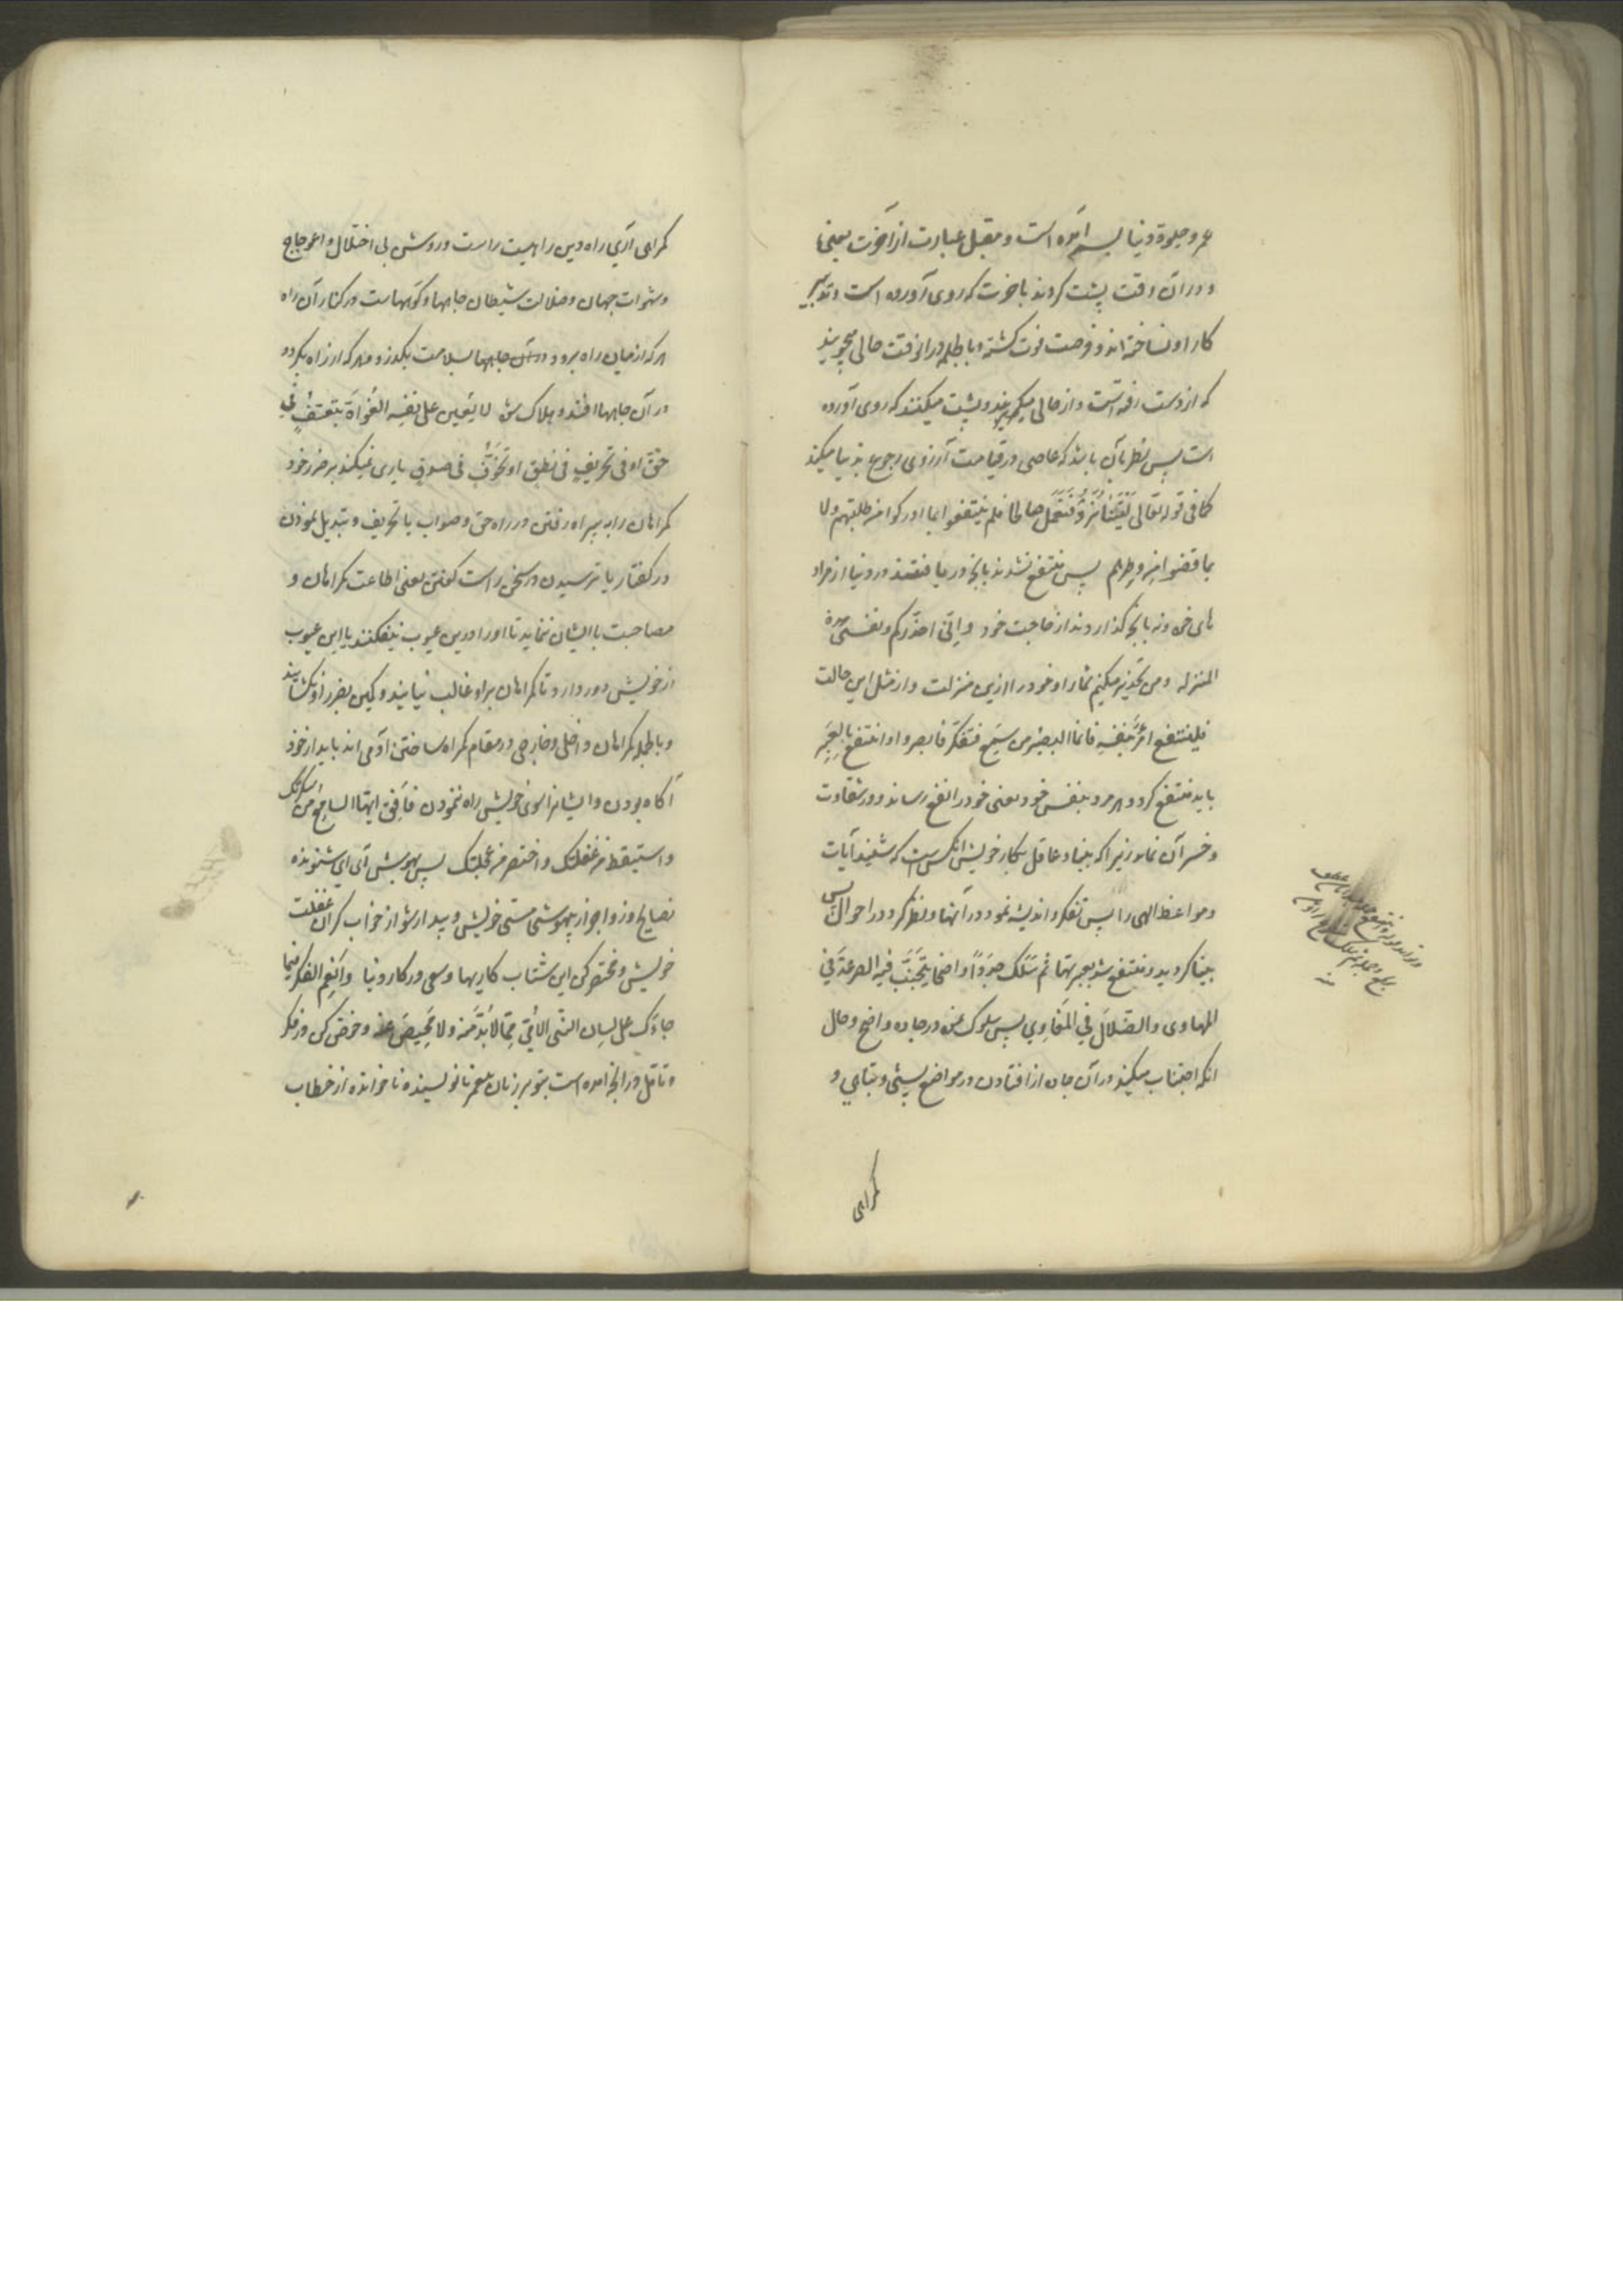 عمر و حیوة دنیا بسر آمده است و مقبل عبارت از آخرت یعنی
و در آن وقت پشت کردند باخرت که روی آورده است و تدبیر
کار او نساخته اند و فرصت فوت کشته و بالجمله در انوقت حالی میجویند
که از دست رفته است و از حالی میکریزند و پشت میکنند که روی آورده
است پس نظر بآن باشد که عاصی در قیامت آرزوی رجوع بدنیا میکند
کما فی قوله تعالی لَیْتَنا نُرَدُّ فَنَعْمَلَ صالحا فلم ینتفعوا بما ادرکوا من طلبتهم ولا
بما قضوا من وطرهم پس منتفع نشدند بانچه دریافتند در دنیا از مراد
های خود و نه بانچه گذاردند از حاجت خود و انّی احذّرکم و نفسی هذه
المنزله و من تحذیر میکنم شما را و خود را ازین منزلت و از مثل این حالت
فلینتفع امرؤ بنفسه فانما البصیر من سمع فتفکر فابصر و انتفع بالعِبَر
باید منتفع کردد هر مرد بنفس خود یعنی خود را نفع رساند و در شقاوت
و خسر آن نماند زیرا که بینا و عاقل بکار خویش آنکس است که شنید آیات
و مواعظ الهی را پس تفکر و اندیشه نمود در آنها و نظر کرد در احوال پس
بینا کردید و منتفع شد بعبرتها ثم سَلَکَ جدَداً واضحا یتجنّب فیه الصرعة فی
المهاوی والضلال فی المَغاوِی پس سلوک نمود در جاده واضح و حال
انکه اجتناب میکند در آن جاده از افتادن در مواضع پستی و تباهی و
کمراهی
کمراهی آری راه دین راهیست راست و روشن بی اختلال و اعوجاج
و شهوات جهان و ضلالت شیطان چاهها و کوهاست در کنار آن راه
هر که از میان راه برود در آن چاهها بسلامت بکذرد و هر که از راه بکردد
در آن چاهها افتد و هلاک شود لا یُعین علی نفسه الغُواةَ بتعسّفٍ فی
حقّ او فی تحریفٍ فی نطق او تخوّفٍ فی صدق یاری نمیکند بر ضرر خود
کمراهان را به بیراه رفتن در راه حق و صواب یا تحریف و تبدیل نمودن
در کفتار یا ترسیدن در سخن راست کفتن یعنی اطاعت کمراهان و
مصاحبت با ایشان ننماید تا او را درین عیوب نیفکنند یا این عیوب
از خویش دور دارد تا کمراهان بر او غالب نیایند و کمین بضرر او نکشایند
و بالجمله کمراهان داخلی و خارجی در مقام کمراه ساختن آدمی اند باید از خود
آگاه بودن و ایشانرا بسوی خویش راه ننمودن فأفِق ایها السامع من سکرتک
و استیقظ من غفلتک و اختصر من عجلتک پس بهوش آی ای شنونده
نصایح اوز و اجر از بیهوشی مستی خویش و بیدار شو از خواب کران غفلت
خویش و مختصر کن این شتاب کاریها و سعی در کار دنیا و اَنعِم الفکر فیما
جاءک علی لسان النبی الامّی ممّا لابُدَّ منه ولا مَحیصَ عنه و خوض کن در فکر
و تامّل در انچه آمده است بتو بر زبان پیغمبر نانویسنده ناخوانده از خطاب